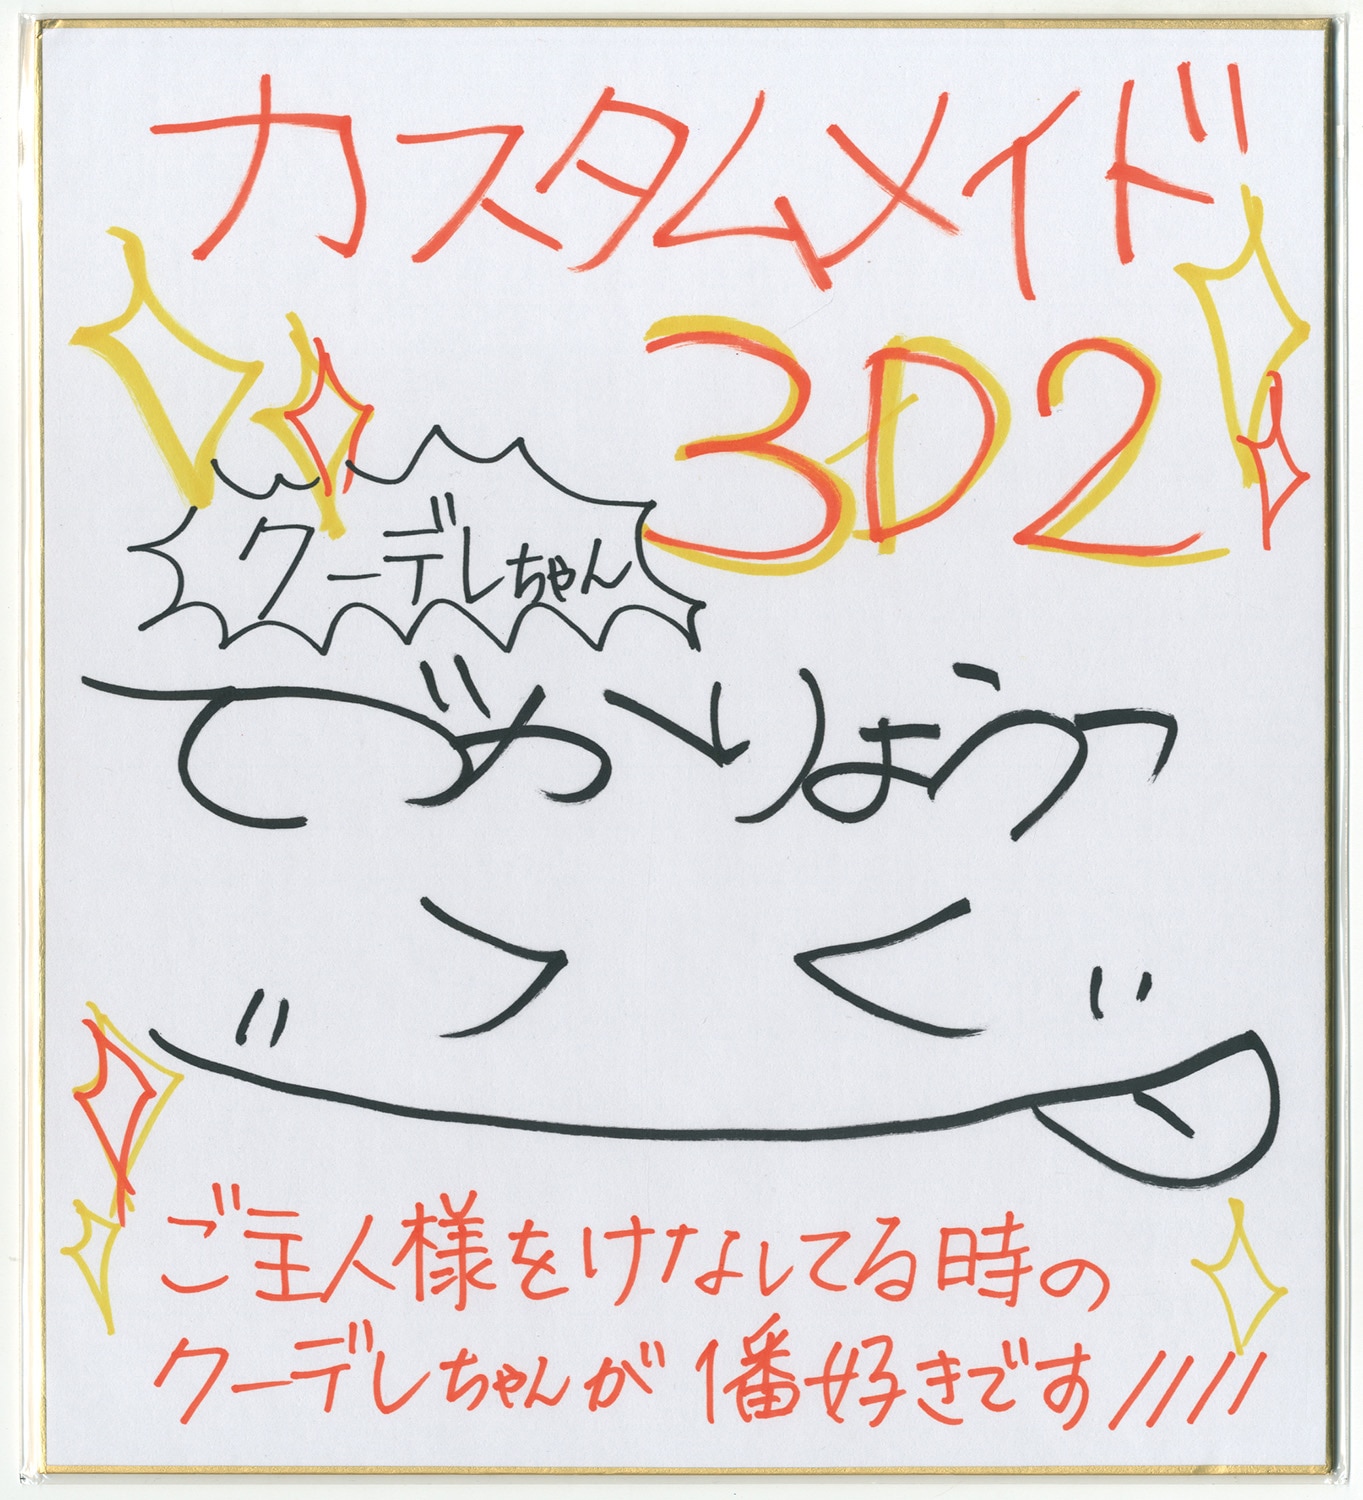 カスタムメイド
3D2
クーデレちゃん
ご主人様をけなしてる時の
クーデレちゃんが1番好きです////